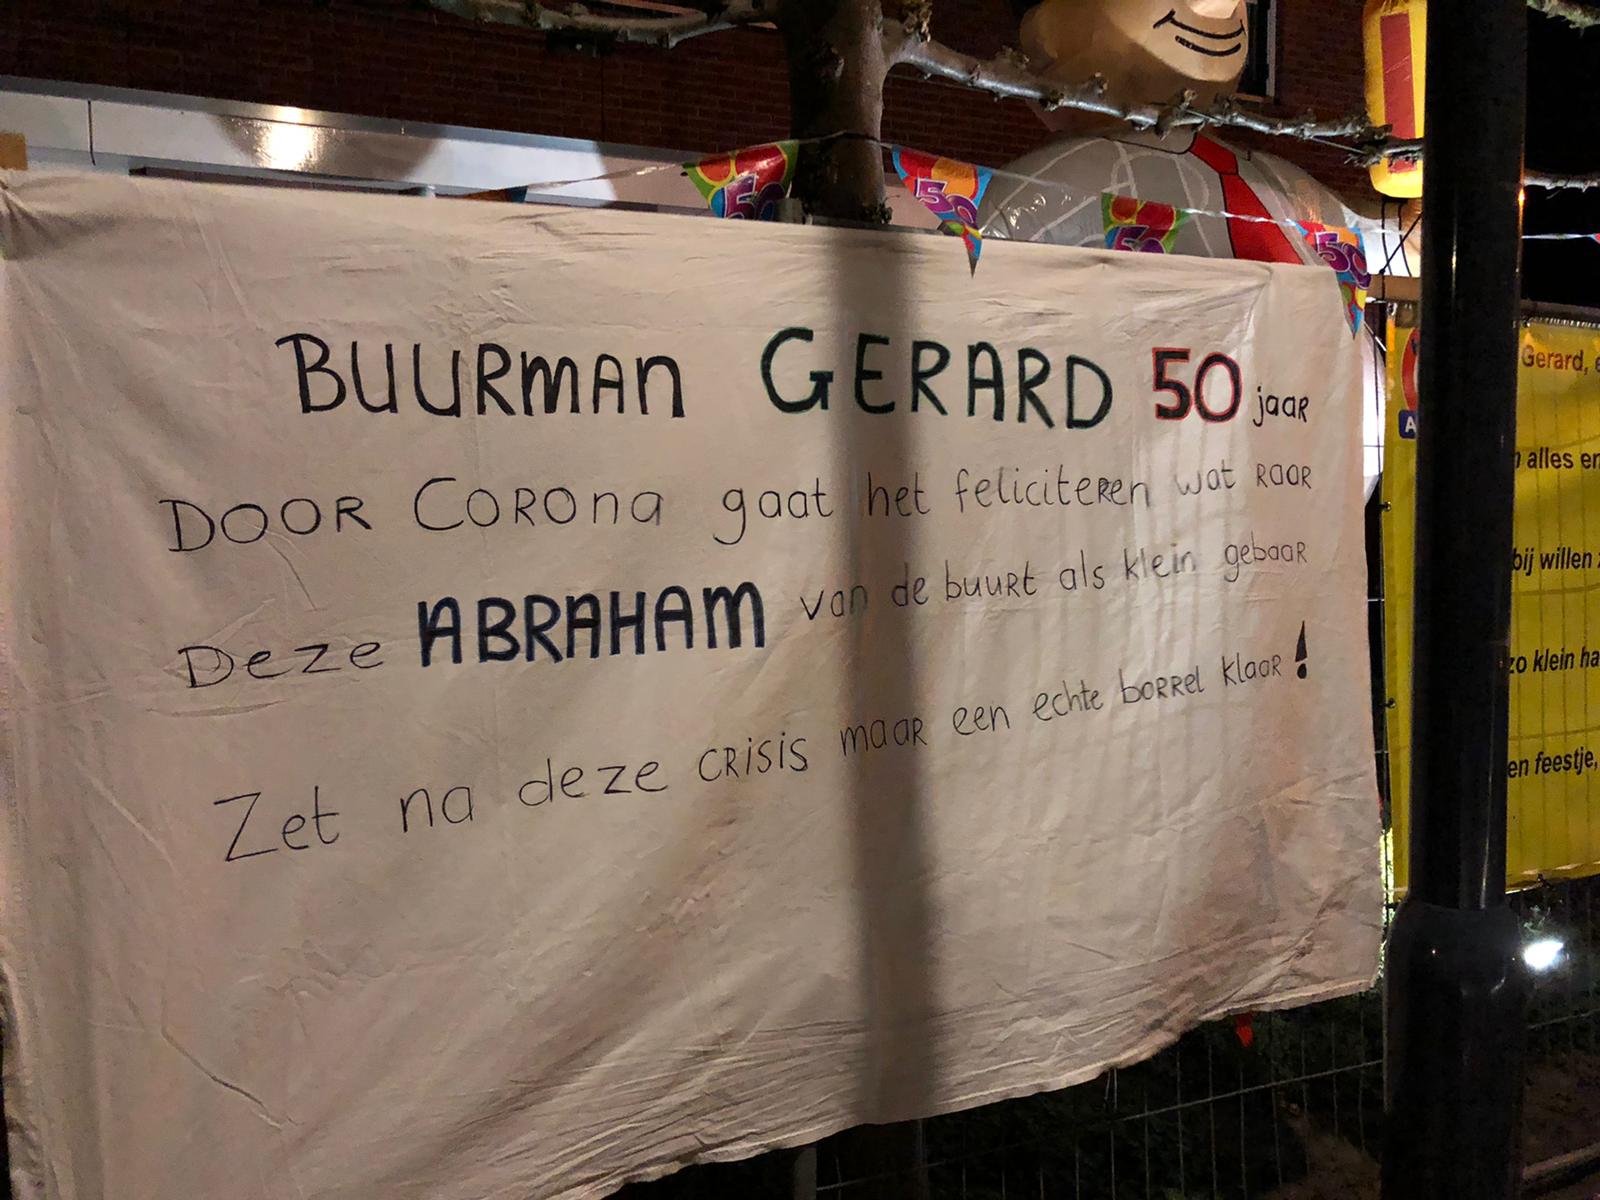 50
50
50
50
BUURMAN GERARD 50 jaar
DOOR CORONA gaat het feliciteren wat raar
Deze ABRAHAM van de buurt als klein gebaar
Zet na deze crisis maar een echte borrel klaar!
Gerard,
A
alles
bij willen
zo klein
feestje,